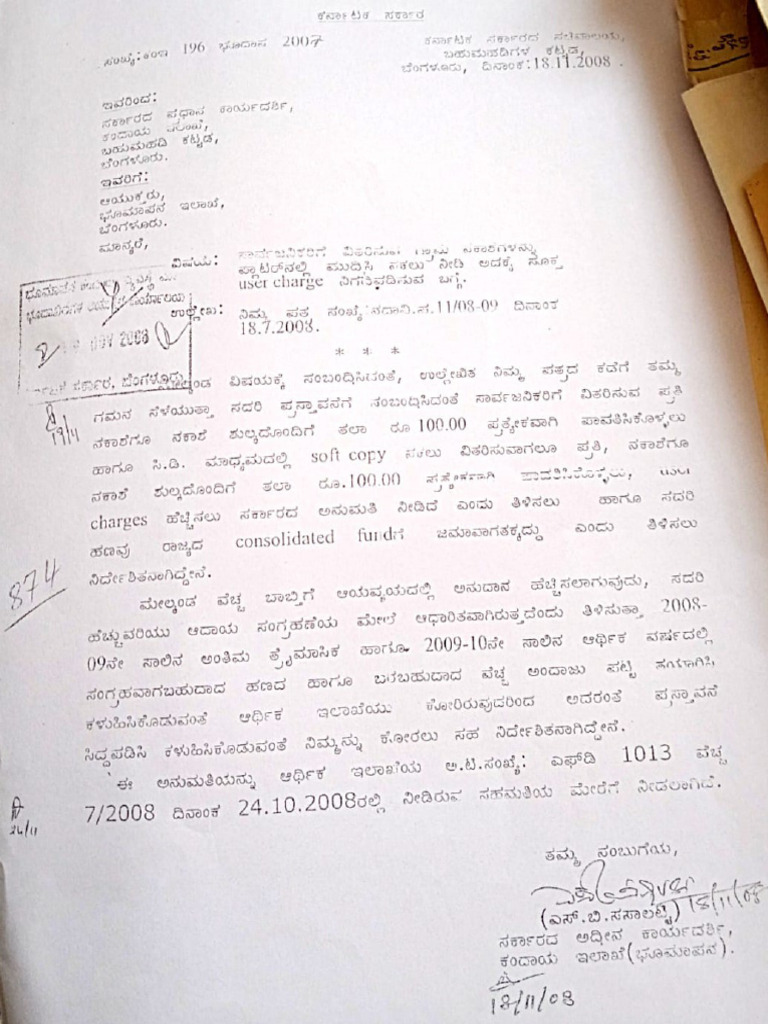 ಕರ್ನಾಟಕ ಸರ್ಕಾರ
ಸಂಖ್ಯೆ:ಕಂಇ 196 ಭೂದಾಸ 2007
ಕರ್ನಾಟಕ ಸರ್ಕಾರದ ಸಚಿವಾಲಯ,
ಬಹುಮಹಡಿಗಳ ಕಟ್ಟಡ,
ಬೆಂಗಳೂರು, ದಿನಾಂಕ:18.11.2008.
ಇವರಿಂದ:
ಸರ್ಕಾರದ ಪ್ರಧಾನ ಕಾರ್ಯದರ್ಶಿ,
ಕಂದಾಯ ಇಲಾಖೆ,
ಬಹುಮಹಡಿ ಕಟ್ಟಡ,
ಬೆಂಗಳೂರು.
ಇವರಿಗೆ:
ಆಯುಕ್ತರು,
ಭೂಮಾಪನ ಇಲಾಖೆ,
ಬೆಂಗಳೂರು.
ಮಾನ್ಯರೆ,
ವಿಷಯ: ಸಾರ್ವಜನಿಕರಿಗೆ ವಿತರಿಸುವ ಗ್ರಾಮ ನಕಾಶೆಗಳನ್ನು
ಪ್ಲಾಟರ್‌ನಲ್ಲಿ ಮುದ್ರಿಸಿ ನಕಲು ನೀಡಿ ಅದಕ್ಕೆ ಸೂಕ್ತ
user charge ನಿಗಧಿಪಡಿಸುವ ಬಗ್ಗೆ.
ಉಲ್ಲೇಖ: ನಿಮ್ಮ ಪತ್ರ ಸಂಖ್ಯೆ 11/08-09 ದಿನಾಂಕ
18.7.2008.
NOV 2008
* * *
ವಿಷಯಕ್ಕೆ ಸಂಬಂಧಿಸಿದಂತೆ, ಉಲ್ಲೇಖಿತ ನಿಮ್ಮ ಪತ್ರದ ಕಡೆಗೆ ತಮ್ಮ
ಗಮನ ಸೆಳೆಯುತ್ತಾ ಸದರಿ ಪ್ರಸ್ತಾವನೆಗೆ ಸಂಬಂಧಿಸಿದಂತೆ ಸಾರ್ವಜನಿಕರಿಗೆ ವಿತರಿಸುವ ಪ್ರತಿ
ನಕಾಶೆಗೂ ನಕಾಶೆ ಶುಲ್ಕದೊಂದಿಗೆ ತಲಾ ರೂ 100.00 ಪ್ರತ್ಯೇಕವಾಗಿ ಪಾವತಿಸಿಕೊಳ್ಳಲು
ಹಾಗೂ ಸಿ.ಡಿ. ಮಾಧ್ಯಮದಲ್ಲಿ soft copy ನಕಲು ವಿತರಿಸುವಾಗಲೂ ಪ್ರತಿ, ನಕಾಶೆಗೂ
ನಕಾಶೆ ಶುಲ್ಕದೊಂದಿಗೆ ತಲಾ ರೂ.100.00 ಪ್ರತ್ಯೇಕವಾಗಿ ಪಾವತಿಸಿಕೊಳ್ಳಲು, user
charges ಹೆಚ್ಚಿಸಲು ಸರ್ಕಾರದ ಅನುಮತಿ ನೀಡಿದೆ ಎಂದು ತಿಳಿಸಲು ಹಾಗೂ ಸದರಿ
ಹಣವು ರಾಜ್ಯದ consolidated fundಗೆ ಜಮಾವಾಗತಕ್ಕದ್ದು ಎಂದು ತಿಳಿಸಲು
ನಿರ್ದೇಶಿತನಾಗಿದ್ದೇನೆ.
ಮೇಲ್ಕಂಡ ವೆಚ್ಚ ಬಾಬ್ತಿಗೆ ಆಯವ್ಯಯದಲ್ಲಿ ಅನುದಾನ ಹೆಚ್ಚಿಸಲಾಗುವುದು, ಸದರಿ
ಹೆಚ್ಚುವರಿಯು ಆದಾಯ ಸಂಗ್ರಹಣೆಯ ಮೇಲೆ ಆಧಾರಿತವಾಗಿರುತ್ತದೆಂದು ತಿಳಿಸುತ್ತಾ 2008-
09ನೇ ಸಾಲಿನ ಅಂತಿಮ ತ್ರೈಮಾಸಿಕ ಹಾಗೂ 2009-10ನೇ ಸಾಲಿನ ಆರ್ಥಿಕ ವರ್ಷದಲ್ಲಿ
ಸಂಗ್ರಹವಾಗಬಹುದಾದ ಹಣದ ಹಾಗೂ ಬರಬಹುದಾದ ವೆಚ್ಚ ಅಂದಾಜು ಪಟ್ಟಿ ತಯಾರಿಸಿ
ಕಳುಹಿಸಿಕೊಡುವಂತೆ ಆರ್ಥಿಕ ಇಲಾಖೆಯು ಕೋರಿರುವುದರಿಂದ ಅದರಂತೆ ಪ್ರಸ್ತಾವನೆ
ಸಿದ್ದಪಡಿಸಿ ಕಳುಹಿಸಿಕೊಡುವಂತೆ ನಿಮ್ಮನ್ನು ಕೋರಲು ಸಹ ನಿರ್ದೇಶಿತನಾಗಿದ್ದೇನೆ.
ಈ ಅನುಮತಿಯನ್ನು ಆರ್ಥಿಕ ಇಲಾಖೆಯ ಅ.ಟಿ.ಸಂಖ್ಯೆ: ಎಫ್‌ಡಿ 1013 ವೆಚ್ಚ
7/2008 ದಿನಾಂಕ 24.10.2008ರಲ್ಲಿ ನೀಡಿರುವ ಸಹಮತಿಯ ಮೇರೆಗೆ ನೀಡಲಾಗಿದೆ.
19/11
874
24/11
ತಮ್ಮ ನಂಬುಗೆಯ,
18/11/08
(ಎಸ್.ಬಿ.ಸಸಾಲಟ್ಟಿ)
ಸರ್ಕಾರದ ಅಧೀನ ಕಾರ್ಯದರ್ಶಿ,
ಕಂದಾಯ ಇಲಾಖೆ(ಭೂಮಾಪನ).
18/11/08